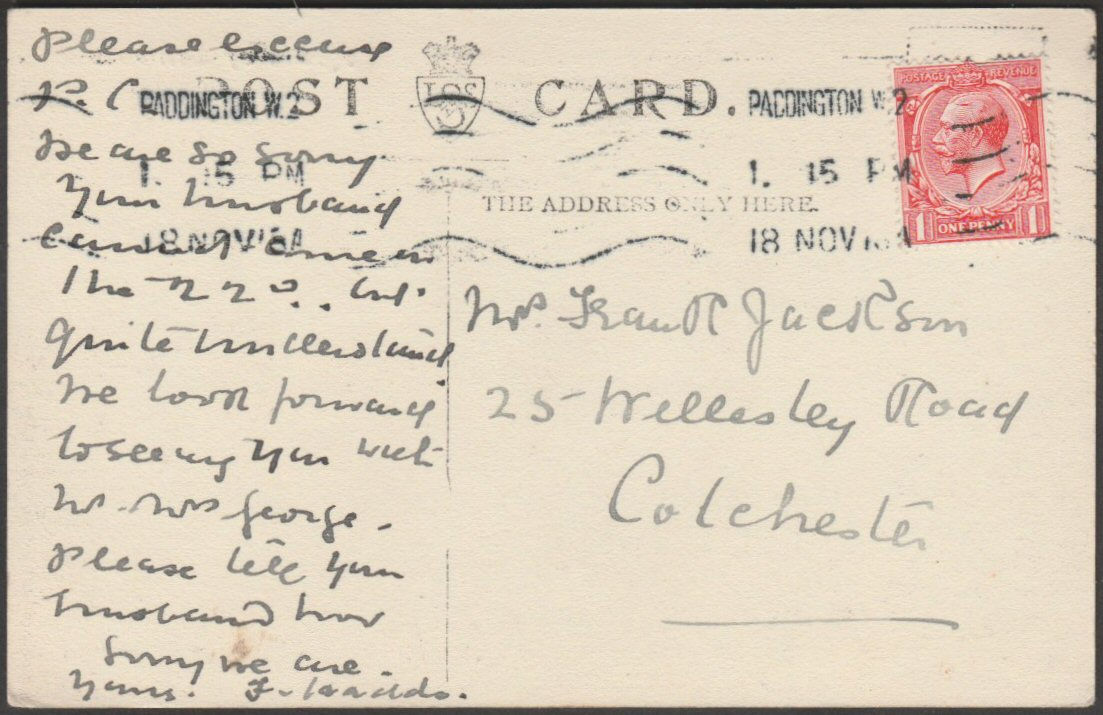 Please excuse
P.C.
We are so sorry
your husband
cannot come on
the 22nd. but
quite understand
We look forward
to seeing you with
Mr. Mrs George.
Please tell your
husband how
sorry we are.
Yours. F.
POST CARD.
THE ADDRESS ONLY HERE.
PADDINGTON W.2
1. 15 PM
18 NOV
PADDINGTON W.2
1. 15 PM
18 NOV
POSTAGE REVENUE
1 ONE PENNY 1
Frank Jackson
25 Wellesley Road
Colchester